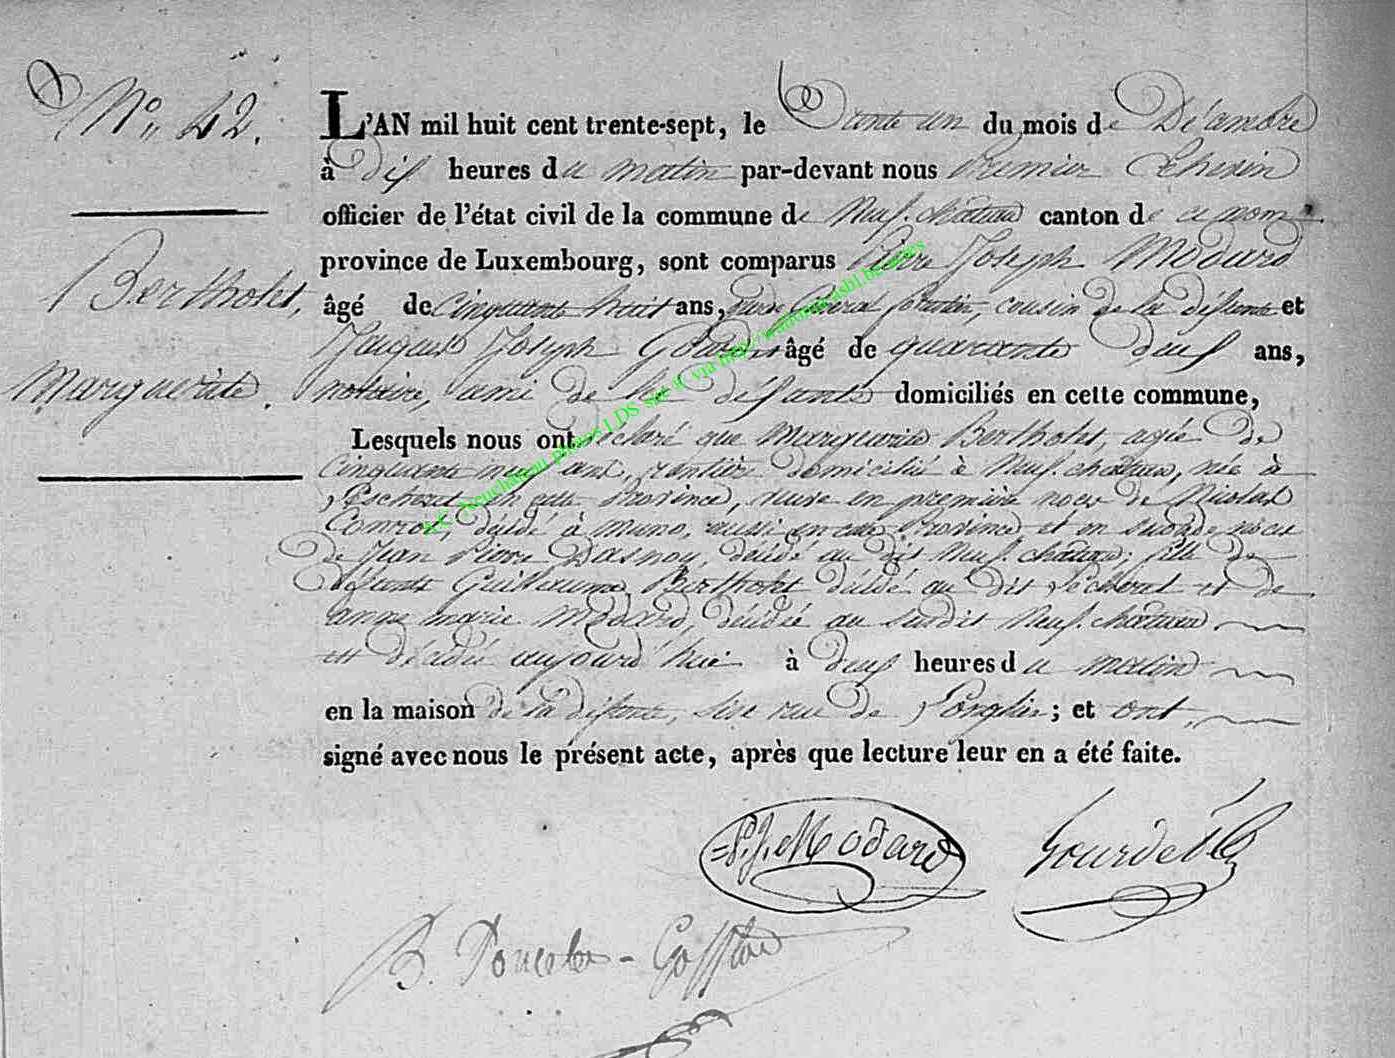 N° 42.
Bertholet,
Marguerite.
L'AN mil huit cent trente-sept, le Trente un du mois de Décembre
à dix heures du matin par-devant nous Premier Echevin
officier de l'état civil de la commune de Neufchâteau canton de ce nom
province de Luxembourg, sont comparus Pierre Joseph Modard
âgé de Cinquante huit ans, garde Général forestier, cousin de la défunte et
Jacques Joseph âgé de quarante deux ans,
notaire, ami de la défunte domiciliés en cette commune,
Lesquels nous ont déclaré que Marguerite Bertholet, agée de
Cinquante neuf ans, rentière domiciliée à Neufchâteau, née à
en cette Province, veuve en première noces de Nicolas
décédé à Muno, aussi en cette Province et en seconde noces
de Jean Pierre Dasnoy, décédé au dit Neufchâteau; fille de
défunts Guillaume Bertholet décédé au dit et de
anne marie Modard, décédée au susdit Neufchâteau
est décédée aujourd'hui à deux heures du matin
en la maison de la défunte, sise rue de Longlier; et ont
signé avec nous le présent acte, après que lecture leur en a été faite.
P. J. Modard
B. Poncelet-
A.C. Neuchâteau photos LDS sur via http://wallonicasbl.be/actes